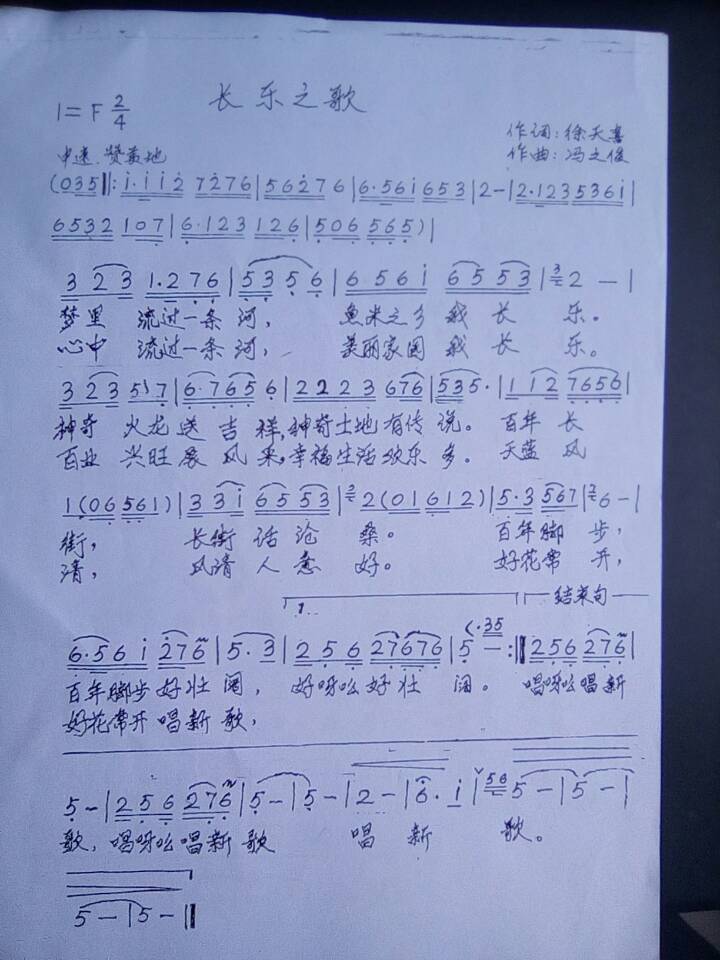 长乐之歌
1=F 2/4
作词:徐天喜
中速 赞美地
作曲:冯之俊
(035‖:i·iii2 7276|56276|6·56i653|2-|2·123536i|
6532 107|6·123 126|506 565)|
3 23 1·276|5356|6 56i 6553|3 2 -|
梦里 流过一条河, 鱼米之乡我长乐。
心中 流过一条河, 美丽家园我长乐。
3 23 517|6·7656|2223 676|535·|112 7656|
神奇 火龙送吉祥,神奇土地有传说。百年长
百业 兴旺展风采,幸福生活欢乐多。天蓝风
1(06561)|33i 6553|2 2(01612)|5·3 567|2 6-|
街, 长街话沧桑。 百年脚步,
清, 风清人意好。 好花常开,
1. 结束句
6·56i 276|5·3|256 27676|5 - (·35:‖256 276|
百年脚步好壮阔, 好呀么好壮阔。 唱呀么唱新
好花常开唱新歌,
5-|256 276|5-|5-|2-|6·i|56 5-|5-|
歌,唱呀么唱新歌 唱新歌。
5-|5-‖